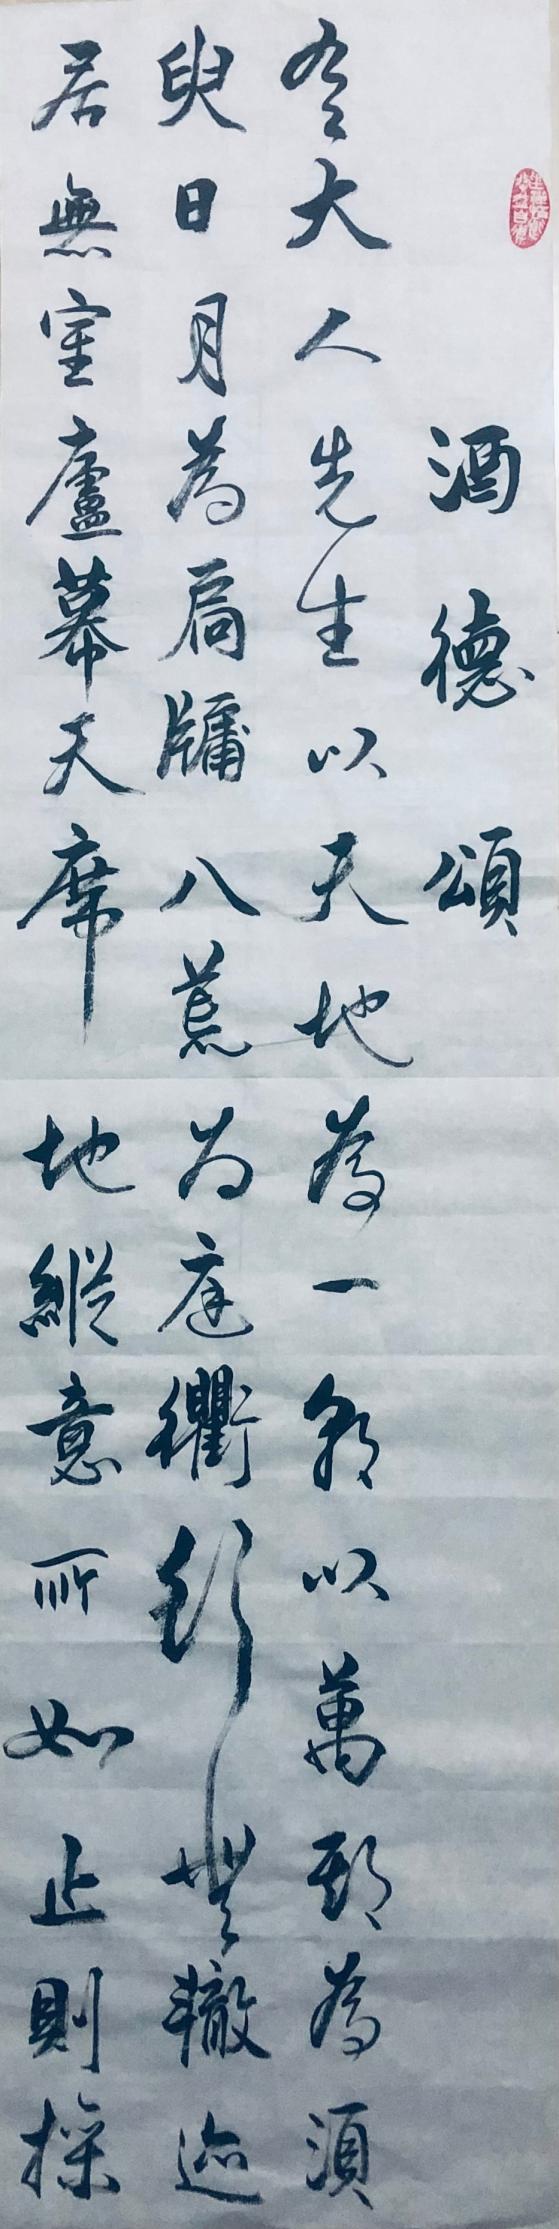 酒德頌
有大人先生以天地為一朝以萬期為須
臾日月為扃牖八荒为庭衢行無轍迹
居無室廬幕天席地縱意所如止則操